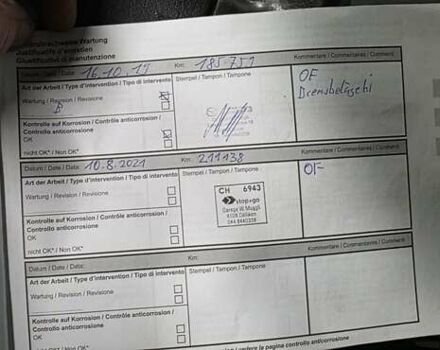 Justificatifs d'entretien
Giustificativi di manutenzione
Datum / Date / Data: 16.10.19 Km: 185'751 Kommentare / Commentaires / Commenti
Art der Arbeit / Type d'intervention / Tipo di intervento
Stempel / Tampon / Tampone
OF
Wartung / Revision / Revisione
Kontrolle auf Korrosion / Contrôle anticorrosion / Controllo anticorrosione
OK
nicht OK* / Non OK*
Datum / Date / Data: 10.8.2021 Km: 211138 Kommentare / Commentaires / Commenti
Art der Arbeit / Type d'intervention / Tipo di intervento
Stempel / Tampon / Tampone
OF
Wartung / Revision / Revisione
CH 6943
stop+go
Garage W. Muggli
Kontrolle auf Korrosion / Contrôle anticorrosion / Controllo anticorrosione
OK
nicht OK* / Non OK*
Datum / Date / Data: Km: Kommentare / Commentaires / Commenti
Art der Arbeit / Type d'intervention / Tipo di intervento
Stempel / Tampon / Tampone
Wartung / Revision / Revisione
Kontrolle auf Korrosion / Contrôle anticorrosion / Controllo anticorrosione
OK
pagina controllo anticorrosione